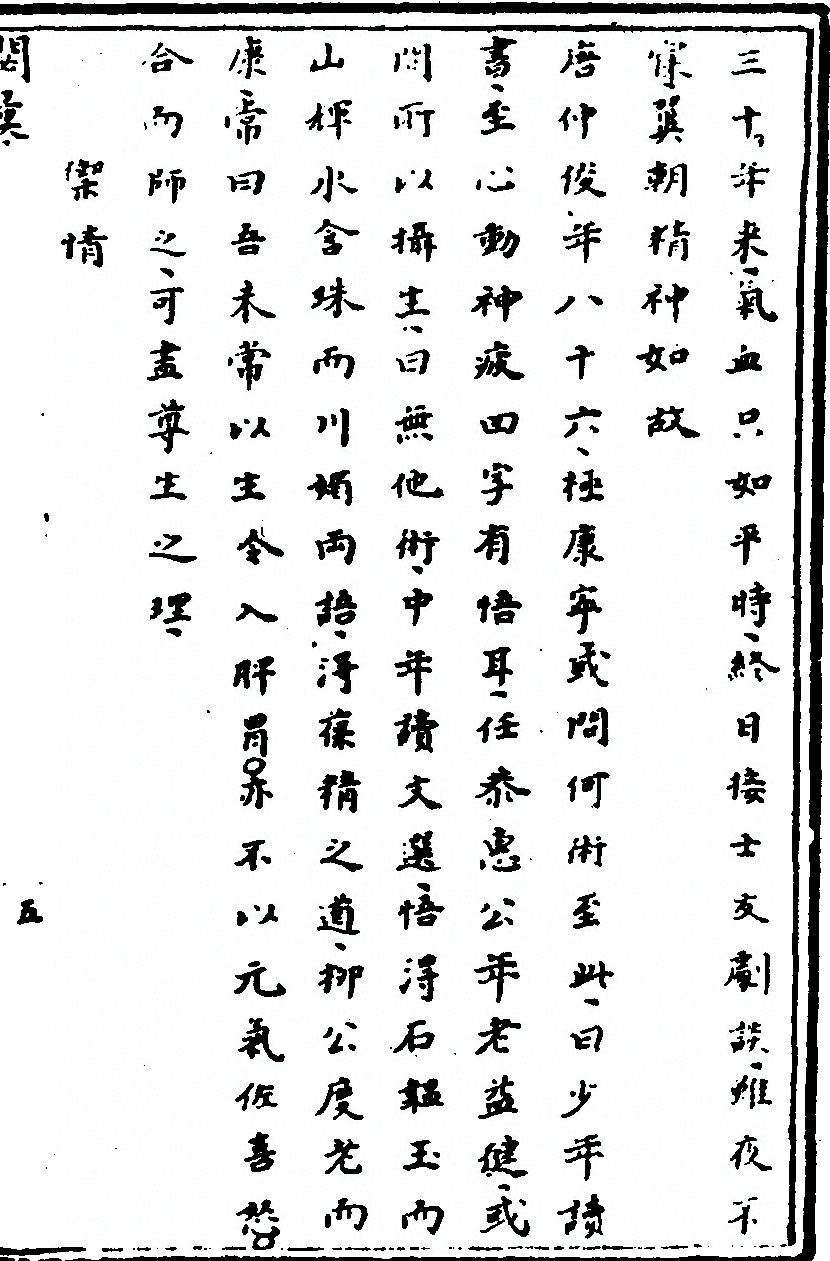 三十年来、氣血只如平時、終日接士友劇談、雖夜不
寐巽朝精神如故
唐仲俊、年八十六、極康寧或問何術至此、曰少年讀
書、至心動神疲四字有悟耳、任恭惠公年老益健、或
問所以攝生、曰無他術、中年讀文選、悟得石韞玉而
山輝水含珠而川媚両語、得葆精之道、柳公度老而
康常曰吾未常以生令入脾胃。亦不以元氣佐喜怒。
合而師之、可盡尊生之理、
禊情
閎奠、
五